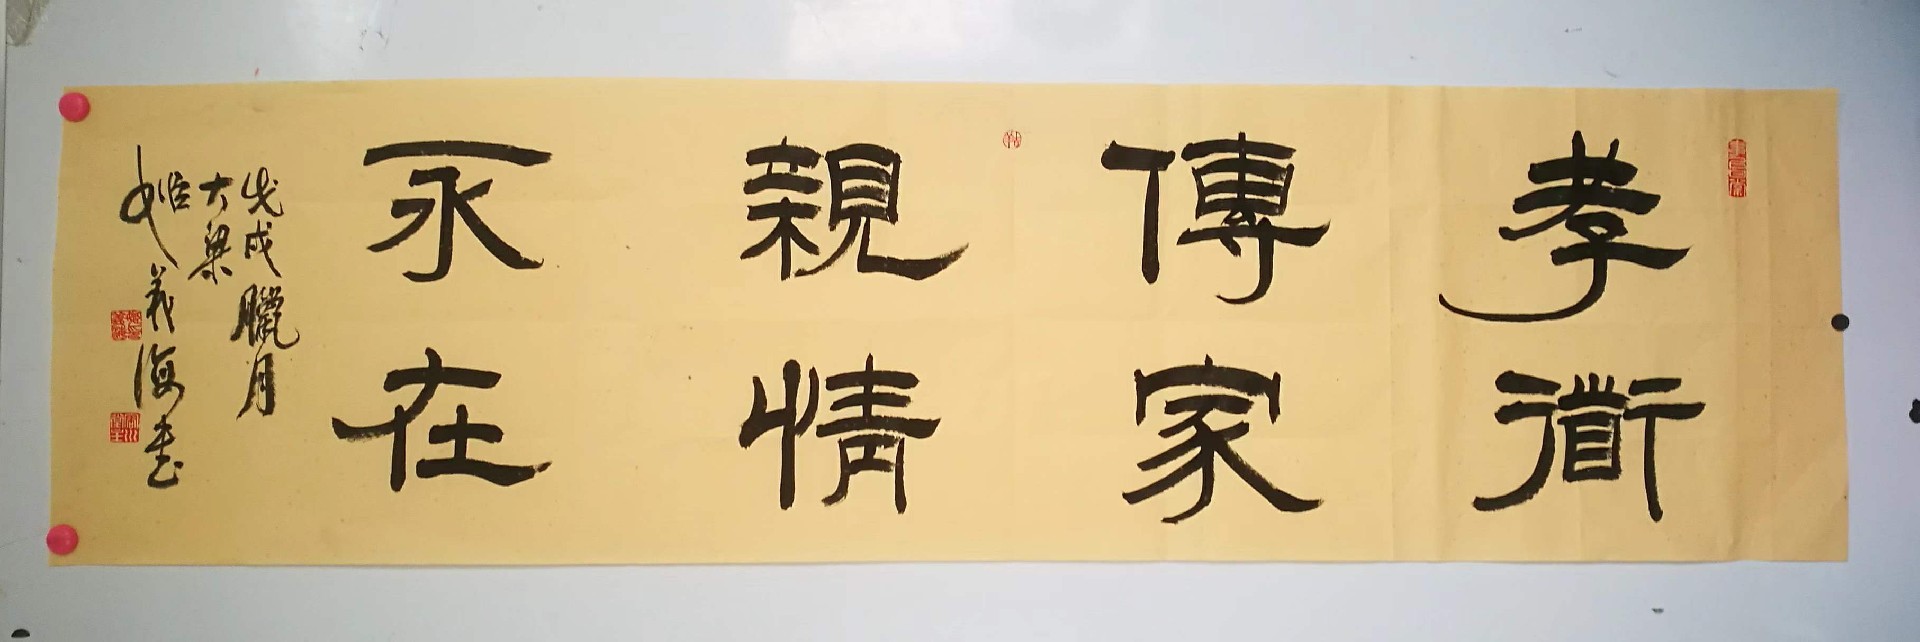 孝衜
傳家
親情
永在
戊戌臘月
大梁
姬義海書